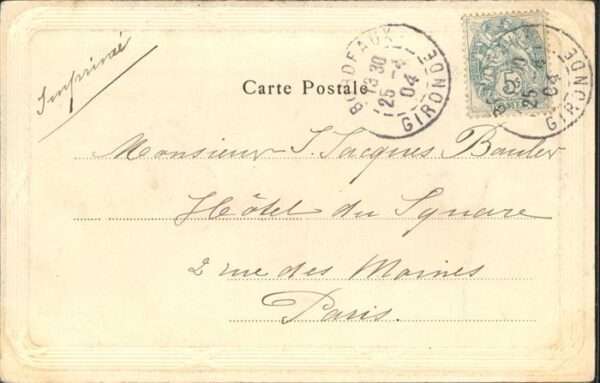 Imprimé
BORDEAUX
13 30
25 -4
04
GIRONDE
5
30
25
04
GIRONDE
Carte Postale
Monsieur J. Jacques
Hôtel du Square
2 rue des Moines
Paris.